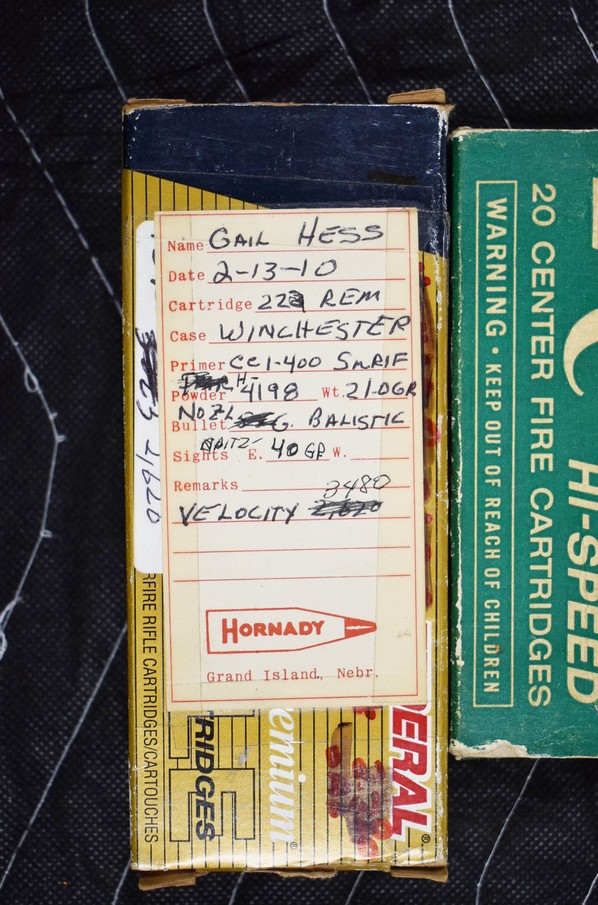 Name GAIL HESS
Date 2-13-10
Cartridge 223 REM
Case WINCHESTER
Primer CCI-400 SMRIF
Powder H-4198 Wt. 21.0GR
Bullet NOZL G. BALISTIC
SPITZ-
Sights E. 40 GR W.
Remarks 3480
VELOCITY
HORNADY
Grand Island, Nebr.
23 2,620
RFIRE RIFLE CARTRIDGES/CARTOUCHES
TRIDGES
emium®
DERAL®
20 CENTER FIRE CARTRIDGES
WARNING • KEEP OUT OF REACH OF CHILDREN
HI-SPEED